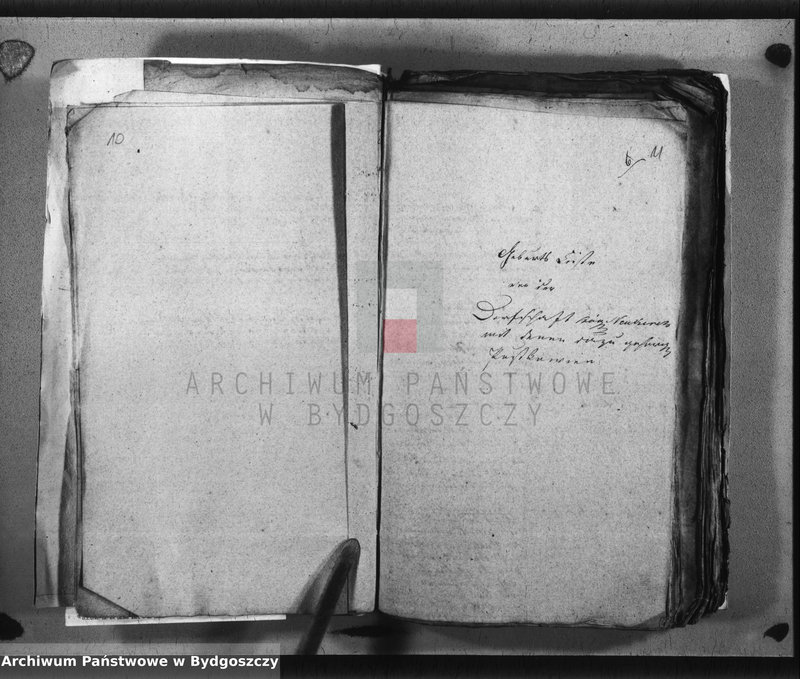 10
6 11
Geburts Liste
von der
Dorfschaft
mit denen dazu
ARCHIWUM PAŃSTWOWE
W BYDGOSZCZY
Archiwum Państwowe w Bydgoszczy